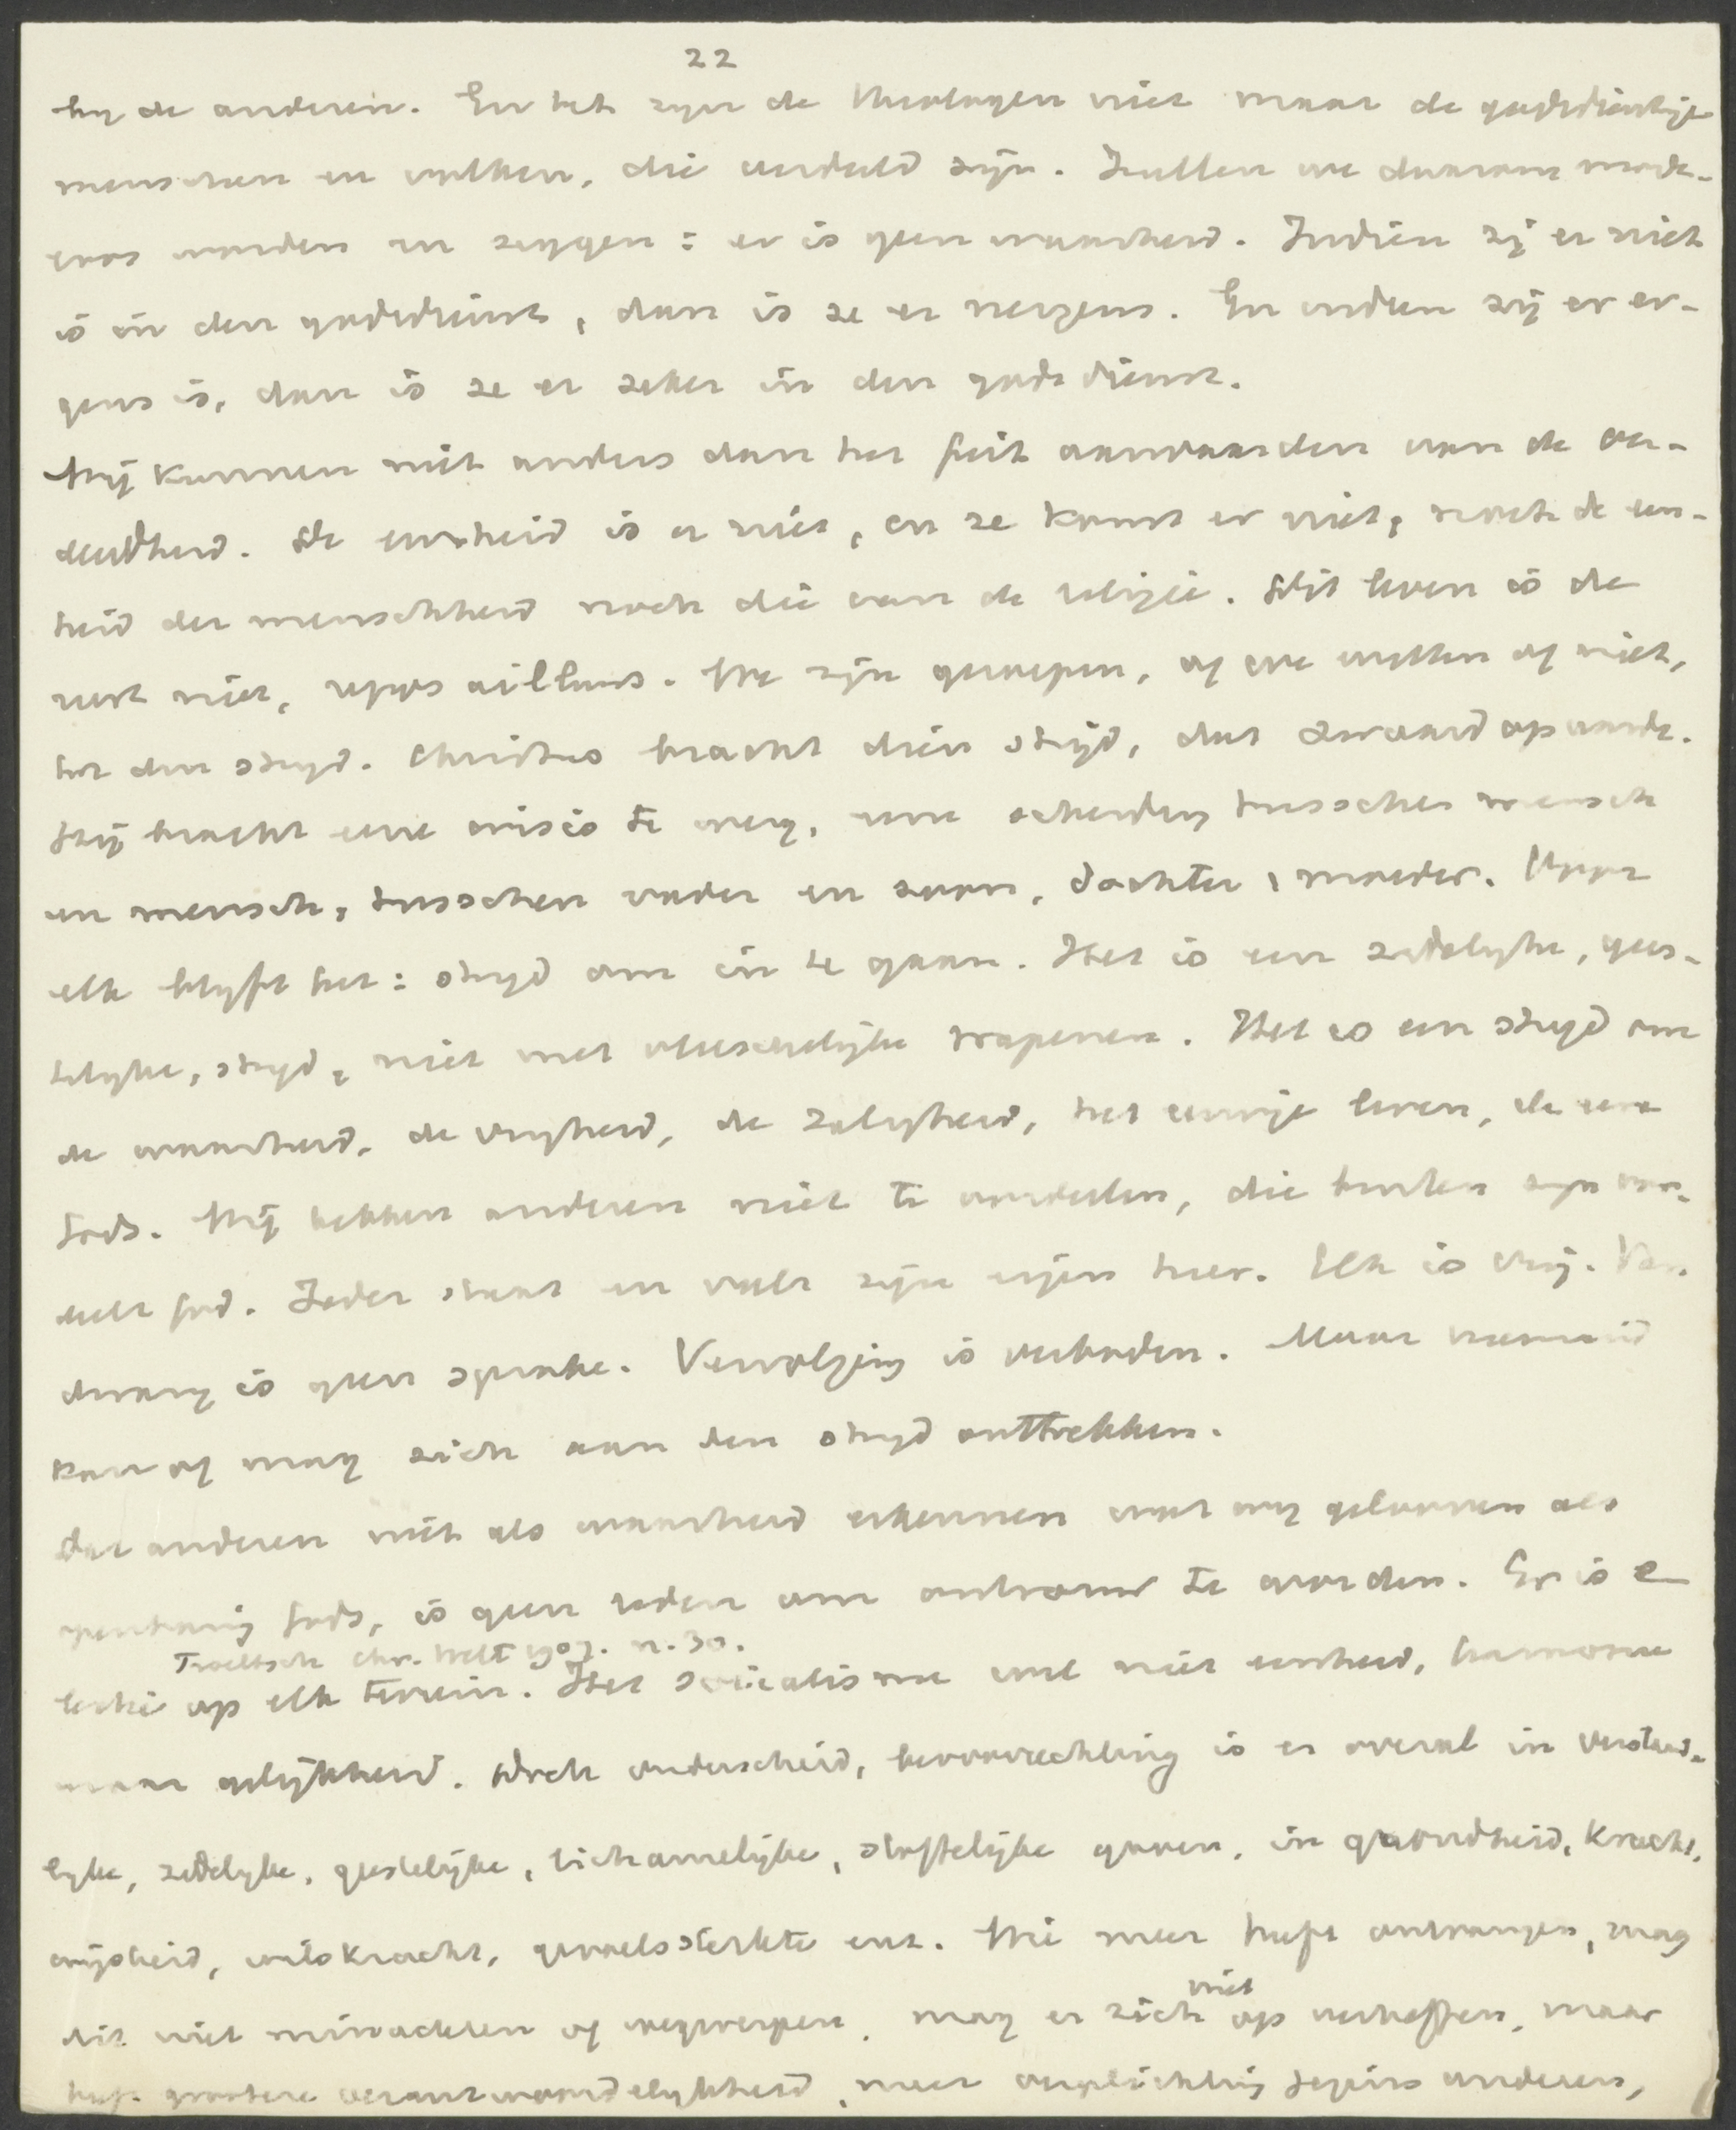 22
bij de anderen. En het zijn de theologen niet maar de godsdienstige
menschen en volken, die verdeeld zijn. Zullen we daarom mode-
eros worden en zeggen: er is geen waarheid. Indien zij er niet
is in den godsdienst, dan is ze er nergens. En indien zij er er-
gens is, dan is ze er zeker in den godsdienst.
Wij kunnen niet anders dan het feit aanvaarden van de ver-
deeldheid. De eenheid is er niet, en ze komt er niet, noch de een-
heid der menschheid noch die van de religie. Dit leven is de
rust niet, repos ailleurs. We zijn geroepen, of we willen of niet,
tot den strijd. Christus bracht dien strijd, dat zwaard op aarde.
Hij bracht eene crisis te weeg, eene scheiding tusschen mensch
en mensch, tusschen vader en zoon, dochter, moeder. Voor
elk blijft het: strijd om in te gaan. Het is een zedelijke, gees-
telijke, strijd, niet met vleeschelijke wapenen. Het is een strijd om
de waarheid, de vrijheid, de zaligheid, het eeuwige leven, de eere
Gods. Wij hebben anderen niet te oordeelen, die buiten zijn oor-
deelt God. Ieder staat en valt zijn eigen heer. Elk is vrij. Van
dwang is geen sprake. Vervolging is verboden. Maar niemand
kan of mag zich aan den strijd onttrekken.
Dat anderen niet als waarheid erkennen wat wij gelooven als
openbaring Gods, is geen reden om ontrouw te worden. Er is e-
Troeltsch Chr. Welt 1907. n. 30.
lectie op elk terrein. Het socialisme wil niet eenheid, harmonie
maar gelijkheid. Doch onderscheid, bevoorrechting is er overal in verstand-
lijke, zedelijke, geestelijke, lichamelijke, stoffelijke gaven, in gezondheid, kracht,
wijsheid, wilskracht, gevoelssterkte enz. Wie meer heeft ontvangen, mag
dit niet minachten of wegwerpen, mag er zich niet op verheffen, maar
heeft grootere verantwoordelijkheid, meer verplichting jegens anderen,